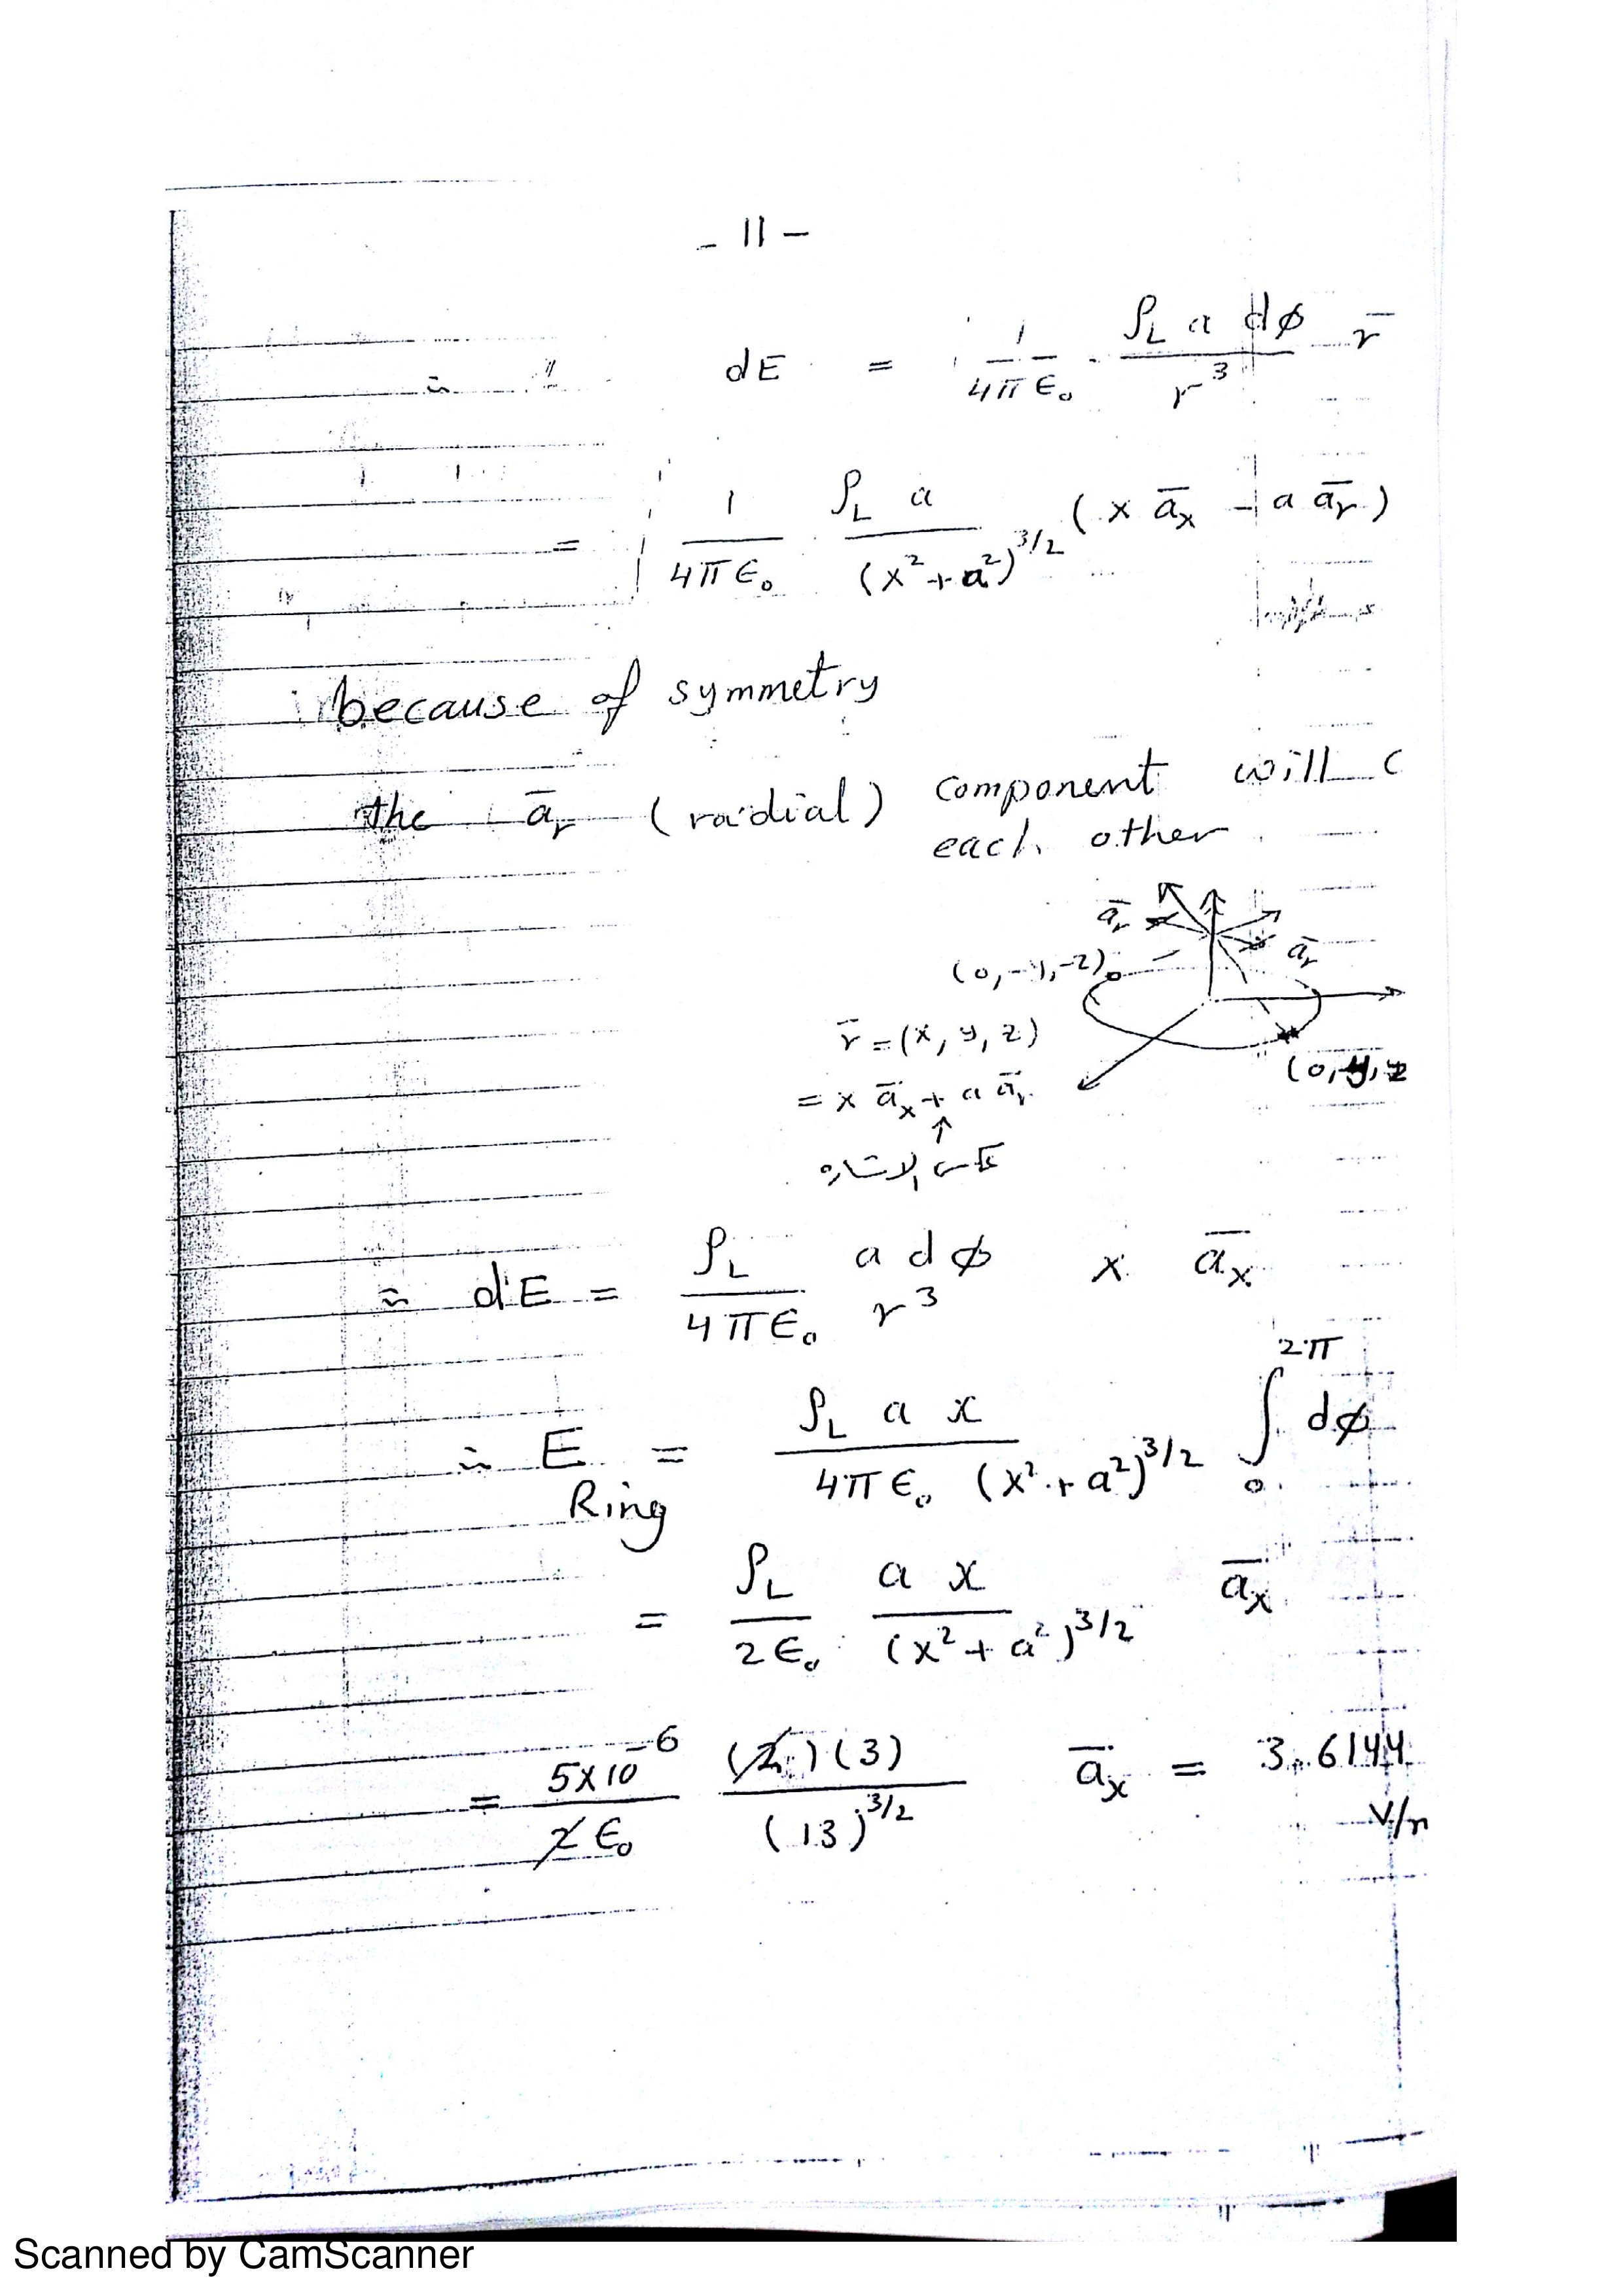 - 11 -
∴ dE = 1/4πϵ₀ · ρL a dφ/r³ r̄
= 1/4πϵ₀ · ρL a/(x²+a²)^3/2 (x āx - a ār)
because of symmetry
the ār (radial) component will c
each other
ār
ār
(0,-y,-z)
r̄ = (x, y, z)
(0,y,z
= x āx + a ār
↑
عكس الاشاره
∴ dE = ρL/4πϵ₀ a dφ/r³ x āx
∴ E Ring = ρL a x/4πϵ₀ (x²+a²)^3/2 ∫₀^2π dφ
= ρL/2ϵ₀ a x/(x²+a²)^3/2 āx
= 5x10^-6/2ϵ₀ (2)(3)/(13)^3/2 āx = 3.6144
V/m
Scanned by CamScanner